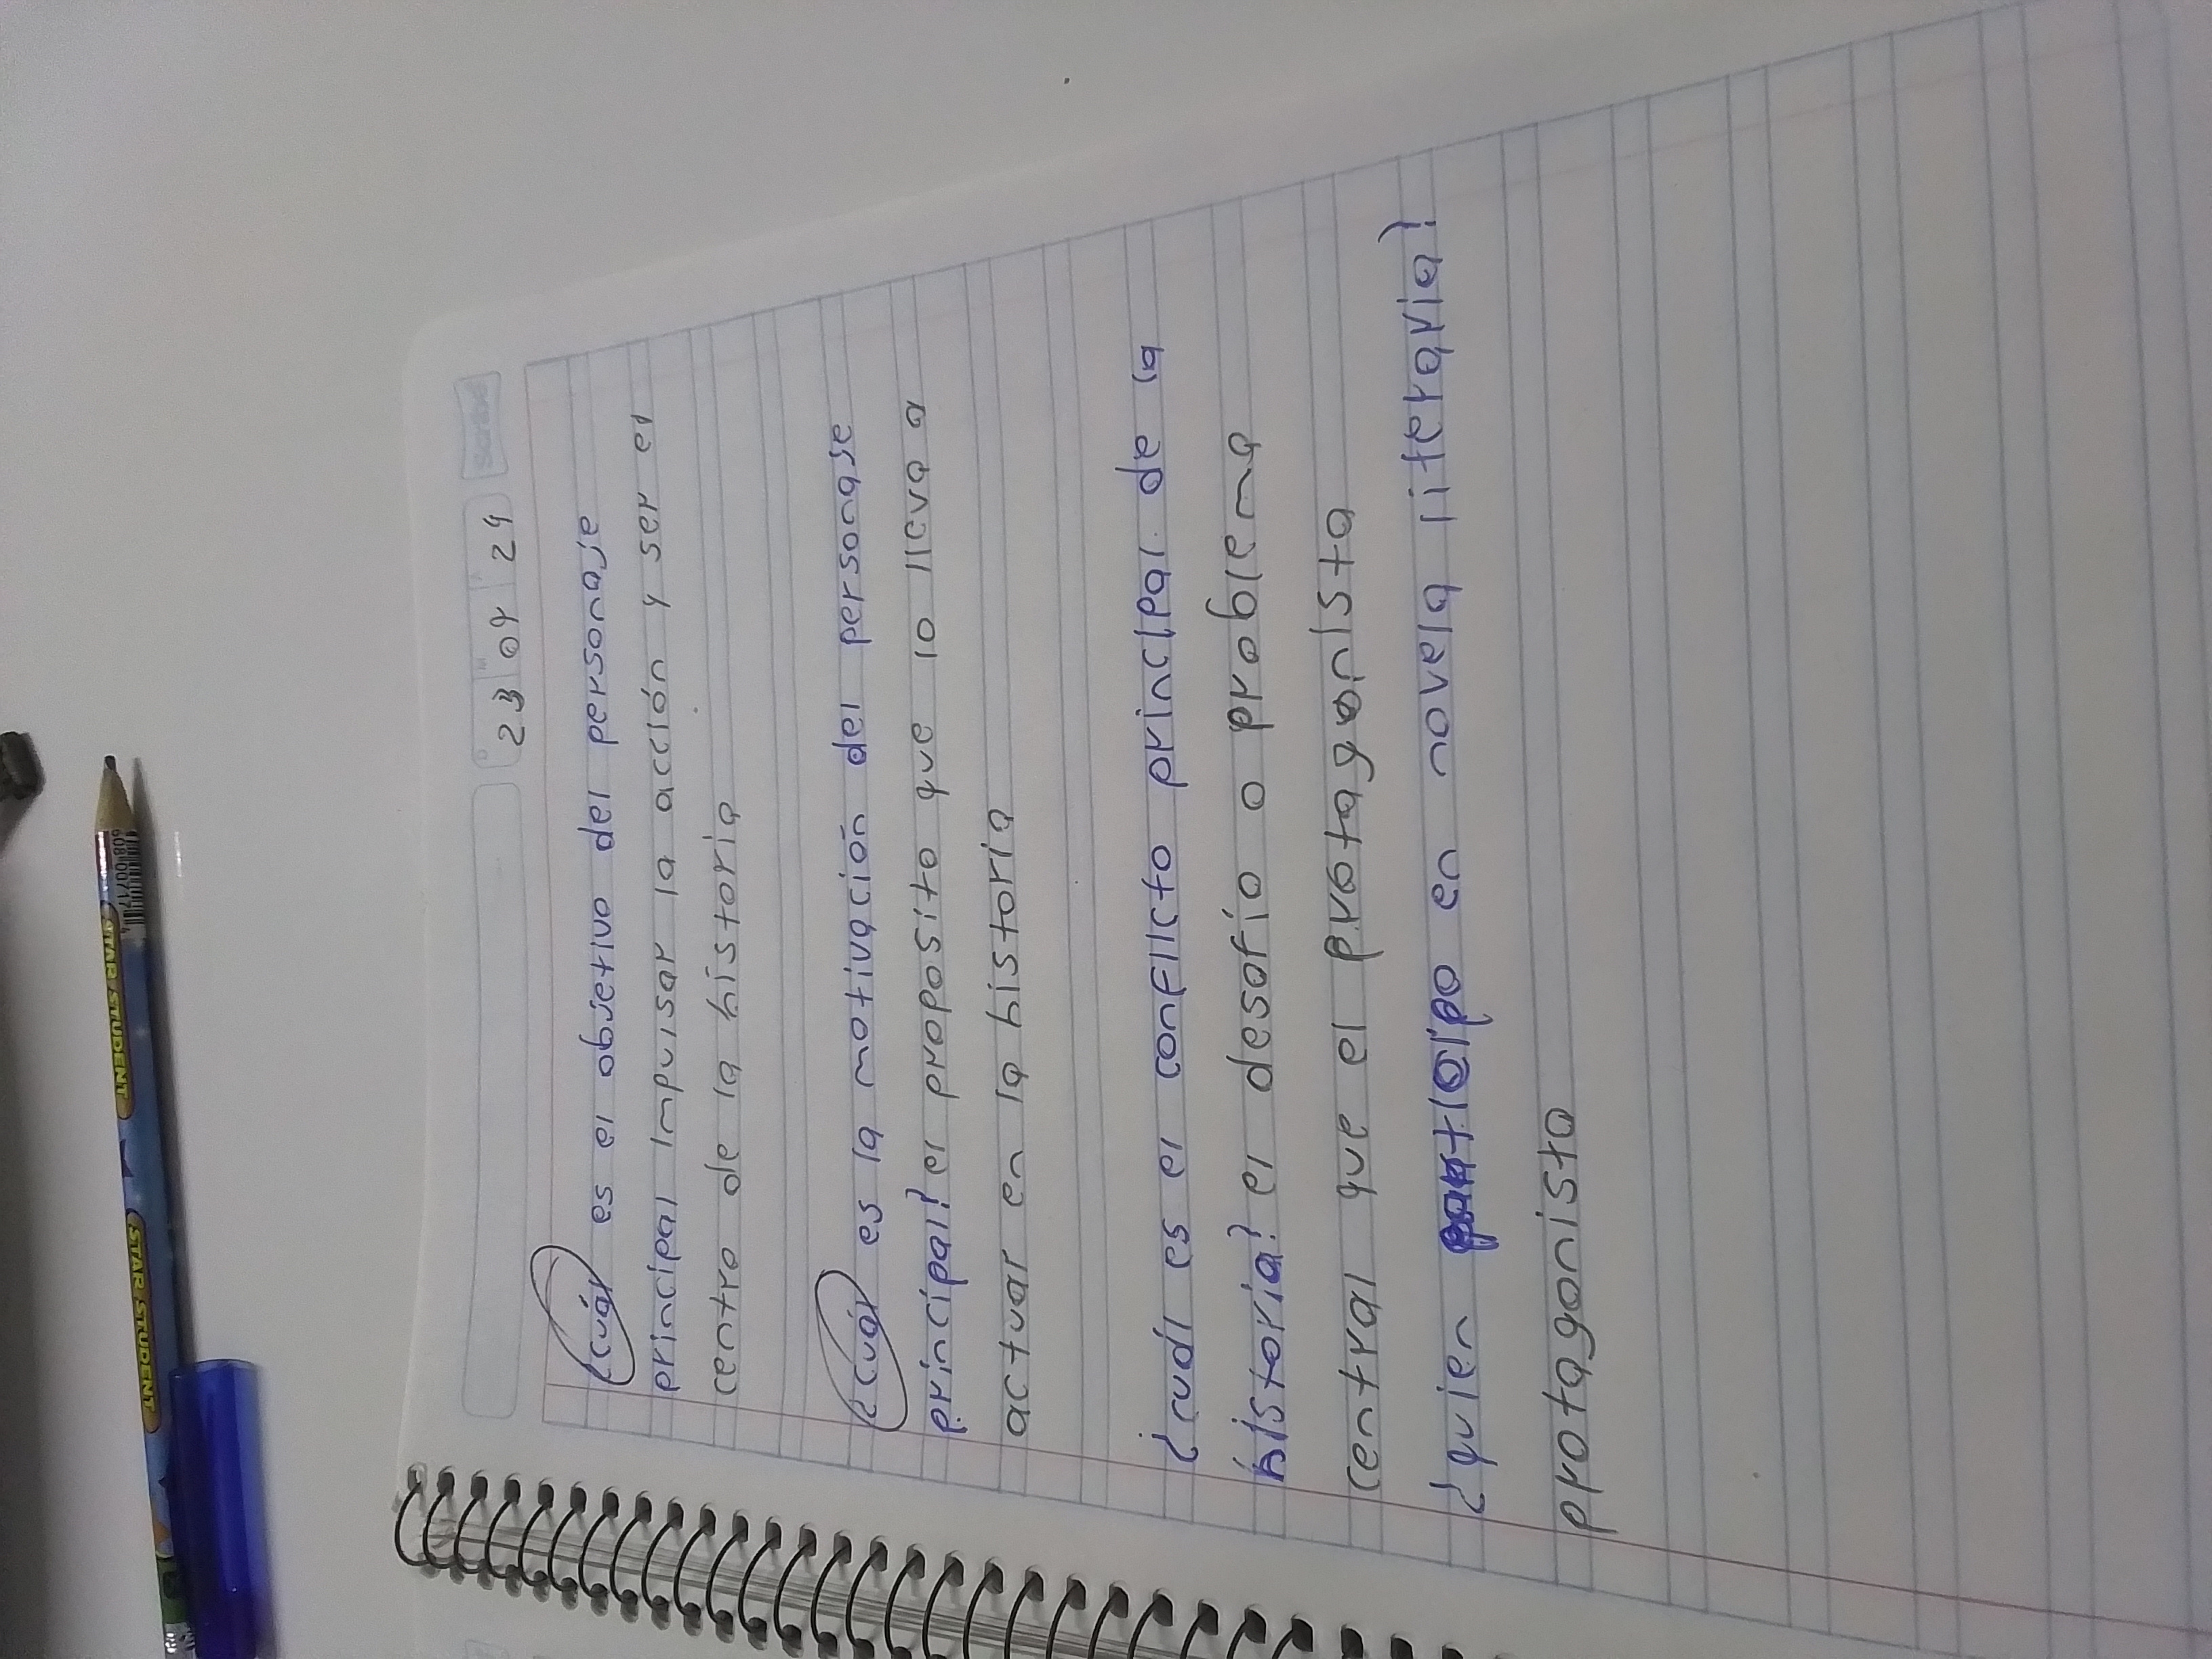 Scribe
23 04 24
¿cuál es el objetivo del personaje
principal impulsar la acción y ser el
centro de la historia
¿cuál es la motivación del personaje
principal? el proposito que lo lleva a
actuar en la historia
¿cuál es el conflicto principal de la
historia? el desafio o problema
central que el protagonista
¿quien participo en novela literaria?
protagonista
STAR STUDENT STAR STUDENT